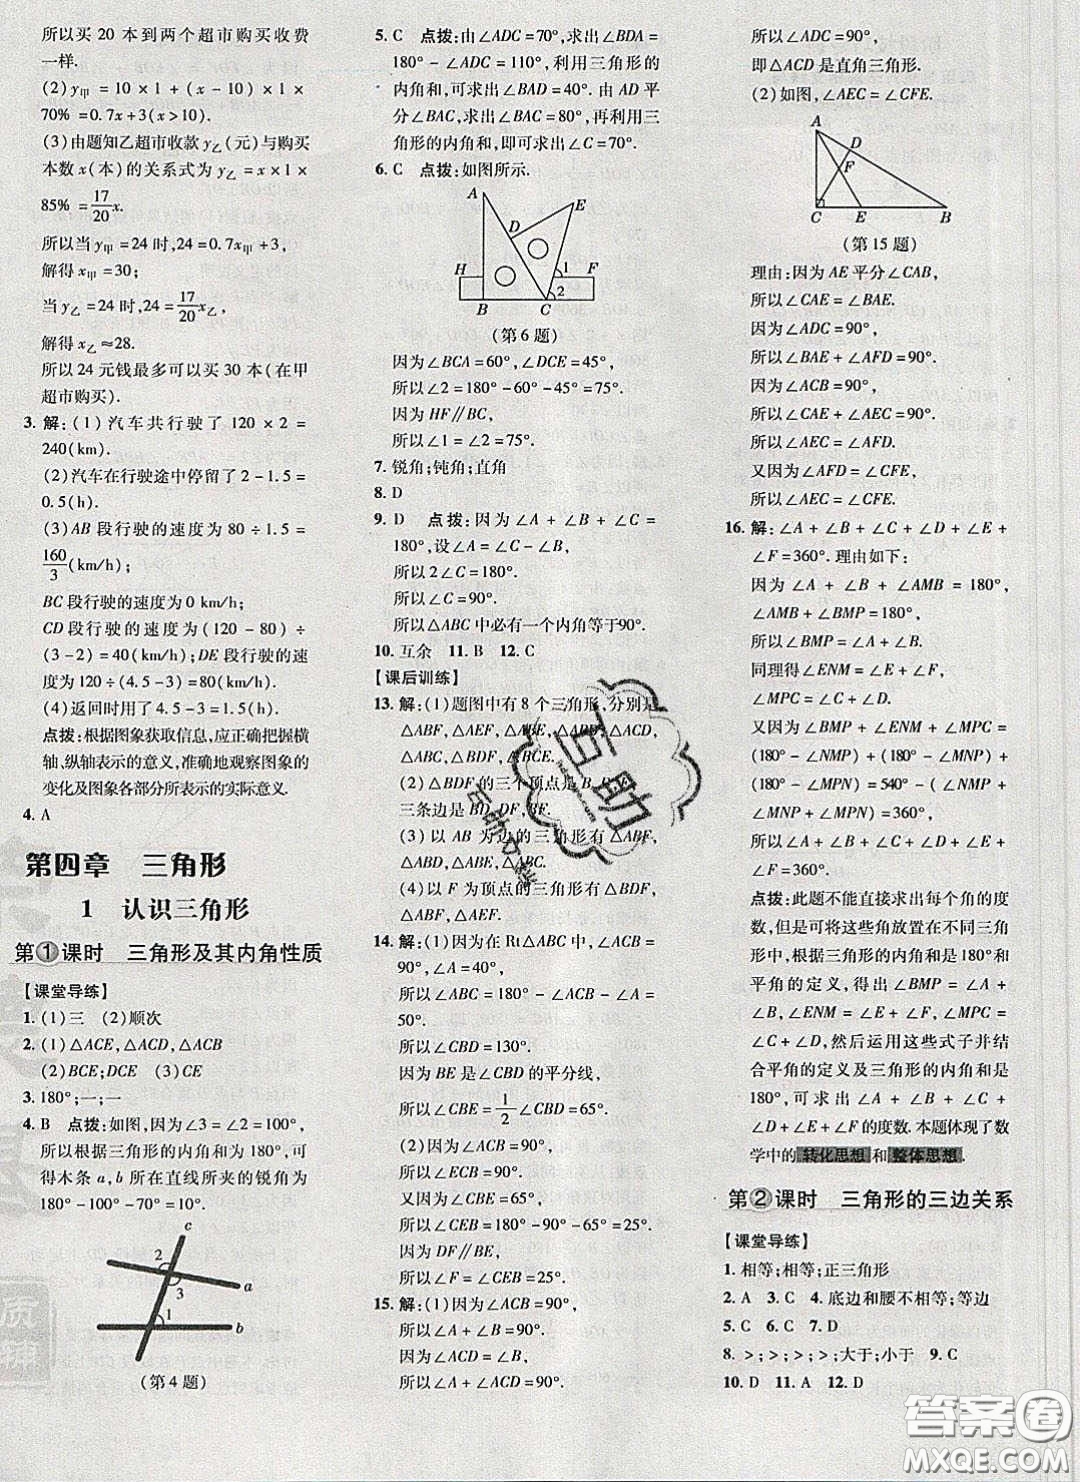 所以买 20 本到两个超市购买收费
一样.
(2)y甲=10×1+(x-10)×1×
70%=0.7x+3(x>10).
(3)由题知乙超市收款 y乙(元)与购买
本数 x(本)的关系式为 y乙=x×1×
85%=17/20x.
所以当 y甲=24 时,24=0.7x甲+3,
解得 x甲=30;
当 y乙=24 时,24=17/20x乙,
解得 x乙≈28.
所以 24 元钱最多可以买 30 本(在甲
超市购买).
3. 解:(1)汽车共行驶了 120×2=
240(km).
(2)汽车在行驶途中停留了 2-1.5=
0.5(h).
(3)AB 段行驶的速度为 80÷1.5=
160/3(km/h);
BC 段行驶的速度为 0 km/h;
CD 段行驶的速度为(120-80)÷
(3-2)=40(km/h);DE 段行驶的速
度为 120÷(4.5-3)=80(km/h).
(4)返回时用了 4.5-3=1.5(h).
点拨:根据图象获取信息,应正确把握横
轴、纵轴表示的意义,准确地观察图象的
变化及图象各部分所表示的实际意义.
4. A
第四章 三角形
1 认识三角形
第①课时 三角形及其内角性质
【课堂导练】
1. (1)三 (2)顺次
2. (1)△ACE,△ACD,△ACB
(2)BCE;DCE (3)CE
3. 180°;一;一
4. B 点拨:如图,因为∠3=∠2=100°,
所以根据三角形的内角和为 180°,可
得木条 a,b 所在直线所夹的锐角为
180°-100°-70°=10°.
c
2
3
a
1
b
(第 4 题)
5. C 点拨:由∠ADC=70°,求出∠BDA=
180°-∠ADC=110°,利用三角形的
内角和,可求出∠BAD=40°. 由 AD 平
分∠BAC,求出∠BAC=80°,再利用三
角形的内角和,即可求出∠C=70°.
6. C 点拨:如图所示.
A
E
D
H
1
F
2
B
C
(第 6 题)
因为∠BCA=60°,∠DCE=45°,
所以∠2=180°-60°-45°=75°.
因为 HF∥BC,
所以∠1=∠2=75°.
7. 锐角;钝角;直角
8. D
9. D 点拨:因为∠A+∠B+∠C=
180°,设∠A=∠C-∠B,
所以 2∠C=180°.
所以∠C=90°.
所以△ABC 中必有一个内角等于90°.
10. 互余 11. B 12. C
【课后训练】
13. 解:(1)题图中有 8 个三角形,分别是
△ABF,△AEF,△ABE,△ADB,△ACD,
△ABC,△BDF,△BCE.
(2)△BDF 的三个顶点是 B,D,F,
三条边是 BD,DF,BF.
(3)以 AB 为边的三角形有△ABF,
△ABD,△ABE,△ABC.
(4)以 F 为顶点的三角形有△ABF,
△BDF,△AEF.
14. 解:(1)因为在 Rt△ABC 中,∠ACB=
90°,∠A=40°,
所以∠ABC=180°-90°-∠A=
50°.
所以∠CBD=130°.
因为 BE 是∠CBD 的平分线,
所以∠CBE=1/2∠CBD=65°.
(2)因为∠ACB=90°,
所以∠ECB=90°.
又因为∠CBE=65°,
所以∠CEB=180°-90°-65°=25°.
因为 DF∥BE,
所以∠F=∠CEB=25°.
15. 解:(1)因为∠ACB=90°,
所以∠A+∠B=90°.
因为∠ACD=∠B,
所以∠A+∠ACD=90°.
所以∠ADC=90°,
即△ACD 是直角三角形.
(2)如图,∠AEC=∠CFE.
A
D
F
C
E
B
(第 15 题)
理由:因为 AE 平分∠CAB,
所以∠CAE=∠BAE.
因为∠ADC=90°,
所以∠BAE+∠AFD=90°.
因为∠ACB=90°,
所以∠CAE+∠AEC=90°.
所以∠AFD=∠AEC.
又因为∠AFD=∠CFE,
所以∠AEC=∠CFE.
16. 解:∠A+∠B+∠C+∠D+∠E+
∠F=360°. 理由如下:
因为∠A+∠B+∠AMB=180°,
∠AMB+∠BMP=180°,
所以∠BMP=∠A+∠B.
同理得∠ENM=∠E+∠F,
∠MPC=∠C+∠D.
又因为∠BMP+∠ENM+∠MPC=
(180°-∠NMP)+(180°-∠MNP)+
(180°-∠MPN)=540°-(∠NMP
+∠MNP+∠MPN)=360°,
所以∠A+∠B+∠C+∠D+∠E+
∠F=360°.
点拨:此题不能直接求出每个角的度
数,但可将这些角放置在不同三角形
中,根据三角形的内角和是180°和
平角的定义,得出∠BMP=∠A+
∠B,∠ENM=∠E+∠F,∠MPC=
∠C+∠D,然后运用这些式子并结
合平角的定义及三角形的内角和是
180°,可求出∠A+∠B+∠C+
∠D+∠E+∠F 的度数. 本题体现了数
学中的转化思想和整体思想.
第②课时 三角形的三边关系
【课堂导练】
1. 相等;相等;正三角形
2. A 3. C 4. 底边和腰不相等;等边
5. C 6. C 7. D
8. >;>;>;>;大于;小于 9. C
10. D 11. A 12. D
互助
答案圈
MXQE.COM